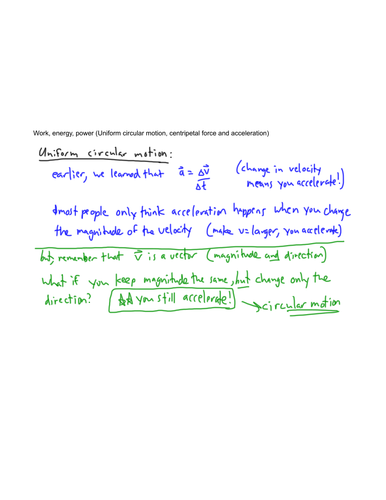 Work, energy, power (Uniform circular motion, centripetal force and acceleration)
Uniform circular motion:
earlier, we learned that a⃗ = Δv⃗/Δt (change in velocity means you accelerate!)
most people only think acceleration happens when you change
the magnitude of the velocity (make v = larger, you accelerate)
but, remember that v⃗ is a vector (magnitude and direction)
What if you keep magnitude the same, but change only the
direction? ☆☆ you still accelerate! → circular motion